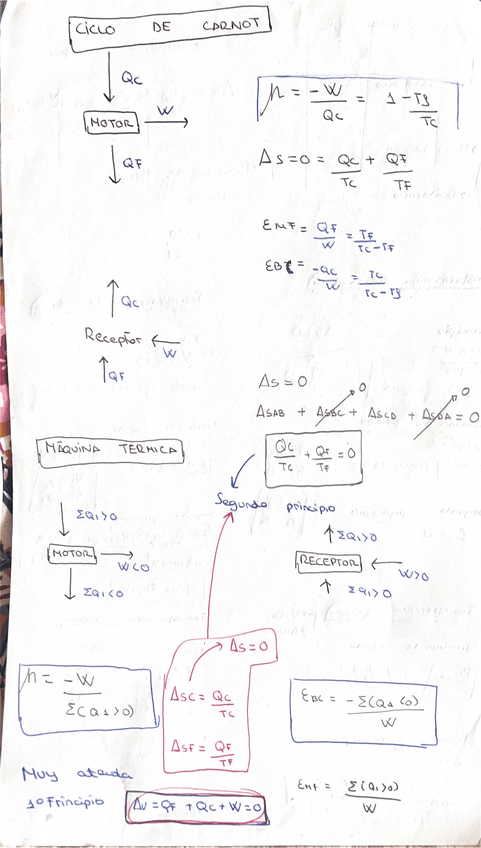 CICLO DE CARNOT
Qc
MOTOR
W
QF
η = -W/Qc = 1 - Tf/Tc
ΔS=0 = Qc/Tc + QF/TF
EMF = QF/W = TF/Tc-TF
EBC = -Qc/W = Tc/Tc-Tf
Qc
Receptor
W
QF
ΔS=0
0 0
ΔSAB + ΔSBC + ΔSCD + ΔSDA = 0
Qc/Tc + QF/TF = 0
MÁQUINA TERMICA
Segundo principio
ΣQ1>0
MOTOR
W<0
ΣQ1<0
ΣQ1>0
RECEPTOR
W>0
ΣQ1>0
ΔS=0
ΔSC = Qc/Tc
ΔSF = QF/TF
η = -W/Σ(Q1>0)
EBC = -Σ(Q1<0)/W
1º Principio
ΔU = QF + Qc + W = 0
EMF = Σ(Q1>0)/W